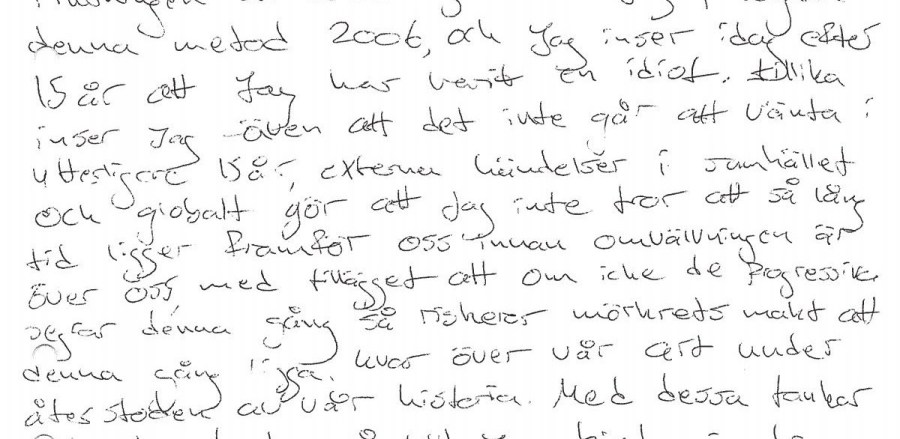 denna metod 2006, och Jag inser idag efter
15 år att Jag har varit en idiot, tillika
inser Jag även att det inte går att vänta i
ytterligare 15 år, externa händelser i samhället
och globalt gör att Jag inte tror att så lång
tid ligger framför oss innan omvälvningen är
över oss, med tillägget att om icke de Progressiva
segrar denna gång så riskerar mörkrets makt att
denna gång ligga kvar över vår art under
återstoden av vår historia. Med dessa tankar